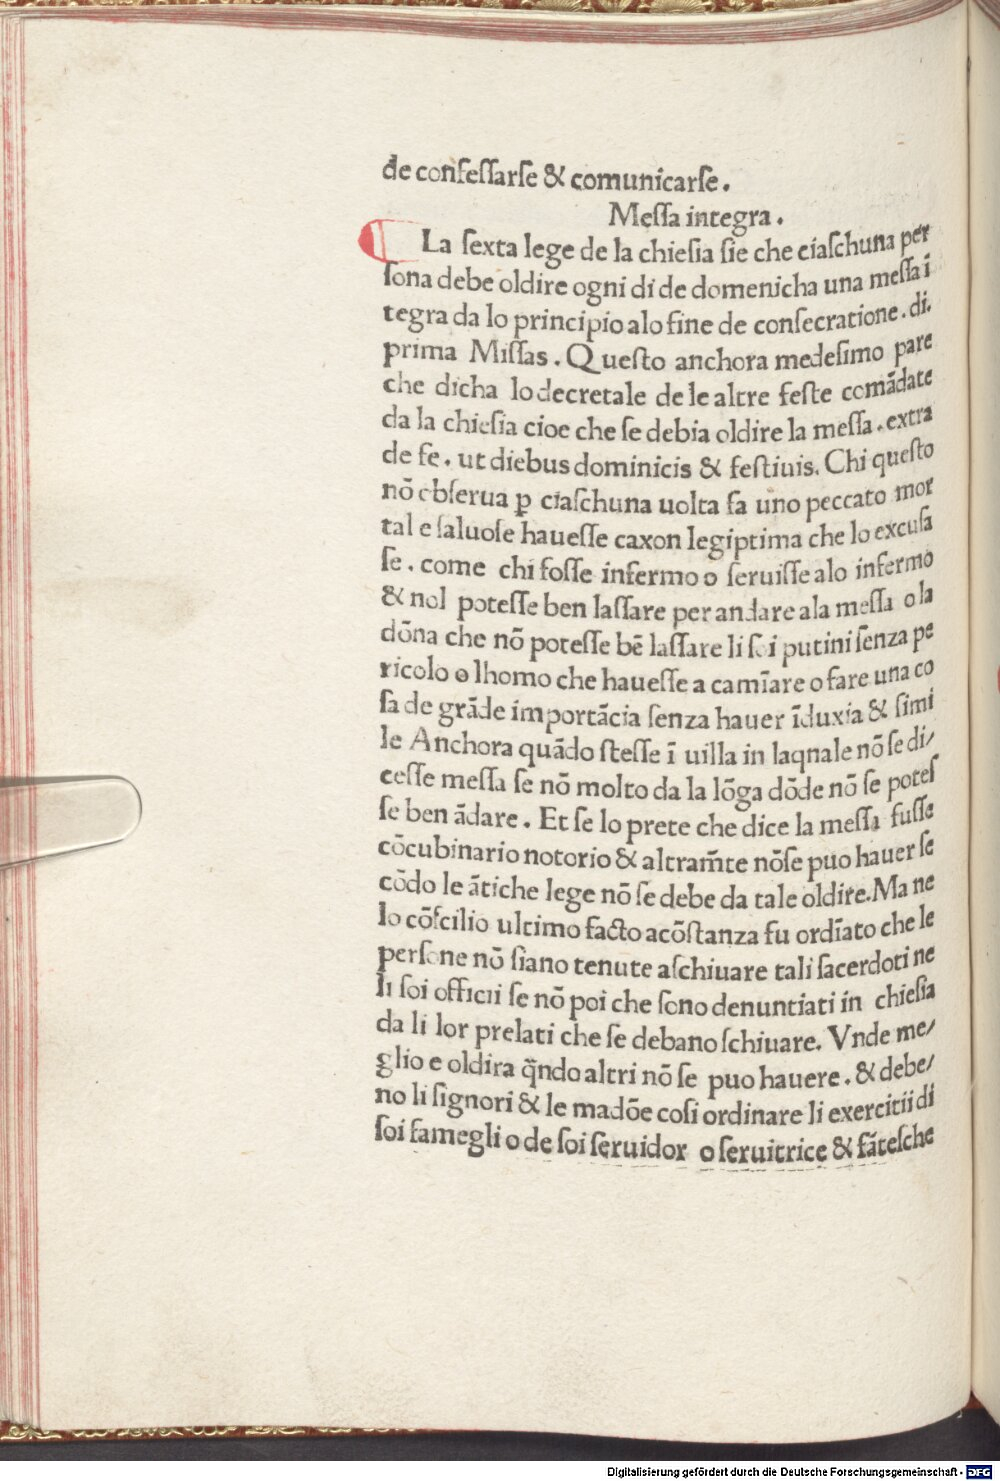 de confeſſarſe & comunicarſe.
Meſſa integra.
La ſexta lege de la chieſia ſie che ciaſchuna per
ſona debe oldire ogni di de domenicha una meſſa ī
tegra da lo principio alo fine de conſecratione. di.
prima Miſſas. Queſto anchora medeſimo pare
che dicha lo decretale de le altre feſte comādate
da la chieſia cioe che ſe debia oldire la meſſa. extra
de fe. ut diebus dominicis & feſtiuis. Chi queſto
nō obſerua ꝑ ciaſchuna uolta fa uno peccato mor
tal e ſaluoſe haueſſe caxon legiptima che lo excuſa
ſe. come chi foſſe infermo o ſeruiſſe alo infermo
& nol poteſſe ben laſſare per andare ala meſſa o la
dōna che nō poteſſe bē laſſare li ſoi putini ſenza pe
ricolo o lhomo che haueſſe a camīare o fare una co
ſa de grāde importācia ſenza hauer īduxia & ſimi
le Anchora quādo ſteſſe ī uilla in laqnale nō ſe di/
ceſſe meſſa ſe nō molto da la lōga dōde nō ſe poteſ
ſe ben ādare. Et ſe lo prete che dice la meſſa fuſſe
cōcubinario notorio & altram̄te nōſe puo hauer ſe
cōdo le ātiche lege nō ſe debe da tale oldire. Ma ne
lo cōſcilio ultimo facto acōſtanza fu ordīato che le
perſone nō ſiano tenute aſchiuare tali ſacerdoti ne
li ſoi officii ſe nō poi che ſono denuntiati in chieſia
da li lor prelati che ſe debano ſchiuare. Vnde me/
glio e oldira q̄ndo altri nō ſe puo hauere. & debe/
no li ſignori & le madōe coſi ordinare li exercitii di
ſoi famegli o de ſoi ſeruidor o ſeruitrice & fāteſche
Digitalisierung gefördert durch die Deutsche Forschungsgemeinschaft - DFG